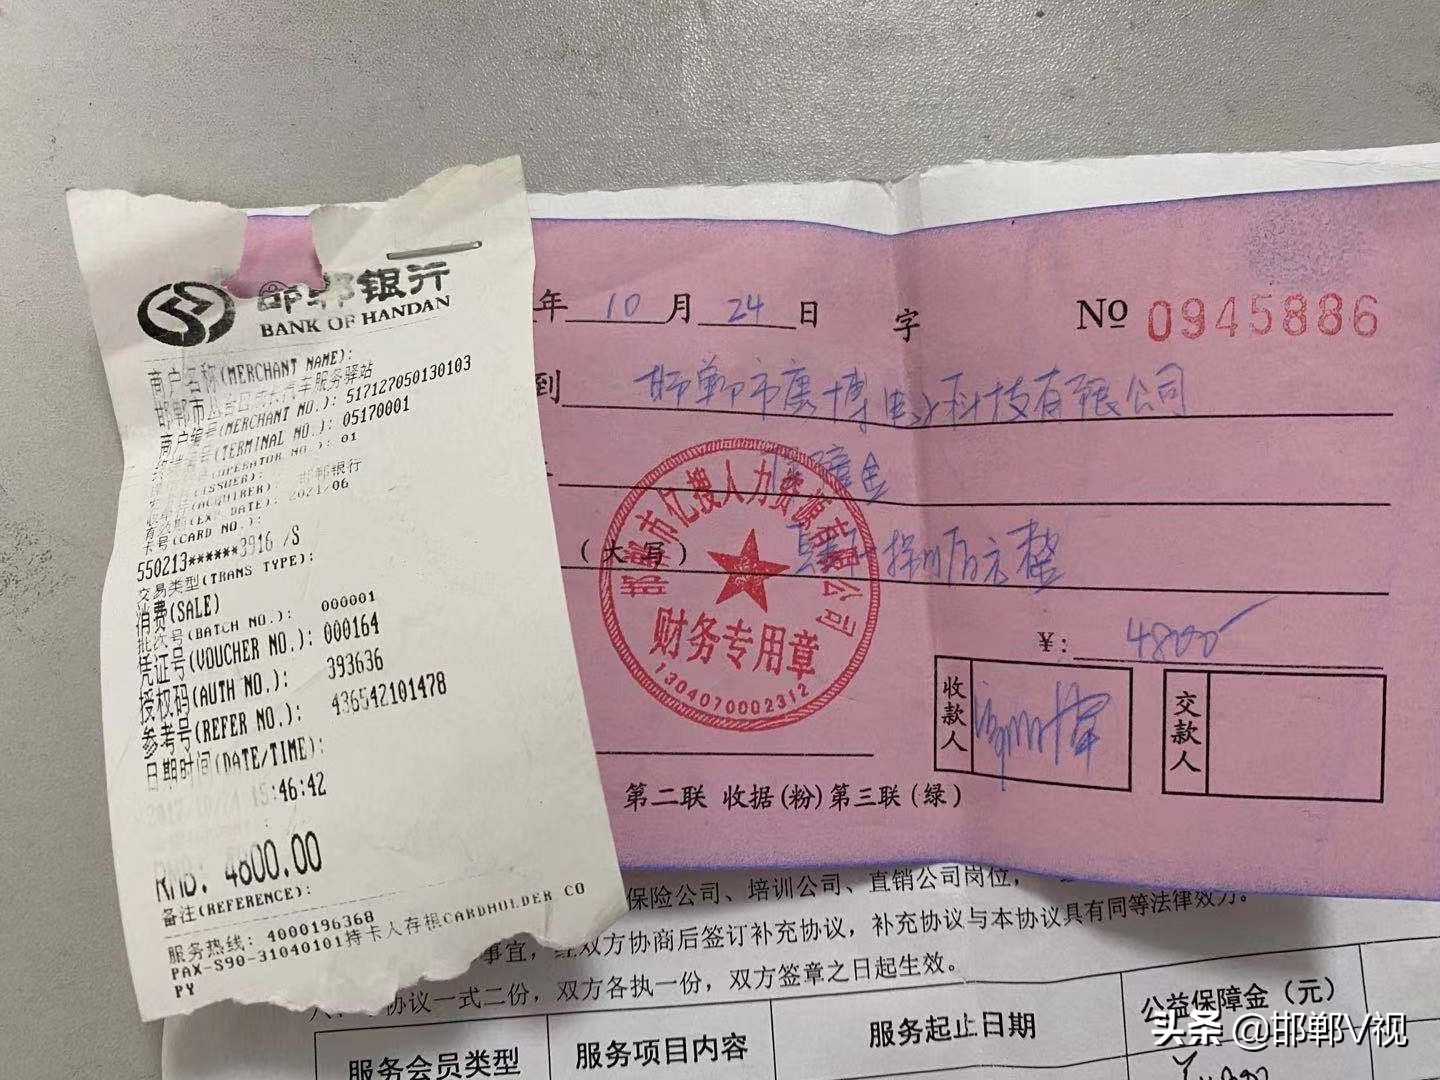 邯郸银行
BANK OF HANDAN
商户名称(MERCHANT NAME):
汽车服务驿站
商户编号(MERCHANT NO.): 517127050130103
(TERMINAL NO.): 05170001
(OPERATOR NO.): 01
(ISSUER): 邯郸银行
(ACQUIRER)
(EX. DATE): 2021/06
卡号(CARD NO.):
550213******3916 /S
交易类型(TRANS TYPE):
消费(SALE)
批次号(BATCH NO.): 000001
凭证号(VOUCHER NO.): 000164
授权码(AUTH NO.): 393636
参考号(REFER NO.): 436542101478
日期时间(DATE/TIME):
2017/10/24 15:46:42
RMB: 4800.00
备注(REFERENCE):
服务热线: 4000196368
PAX-S90-31040101持卡人存根CARDHOLDER CO
PY
年 10 月 24 日 字 No 0945886
到 邯郸市康博电子科技有限公司
保障金
(大写) 肆仟捌佰元整
¥: 4800
收款人
交款人
邯郸市亿搜人力资源有限公司
财务专用章
1304070002312
第二联 收据(粉)第三联(绿)
保险公司、培训公司、直销公司岗位,
事宜,经双方协商后签订补充协议,补充协议与本协议具有同等法律效力。
协议一式二份,双方各执一份,双方签章之日起生效。
服务会员类型 服务项目内容 服务起止日期 公益保障金(元)
头条 @邯郸V视